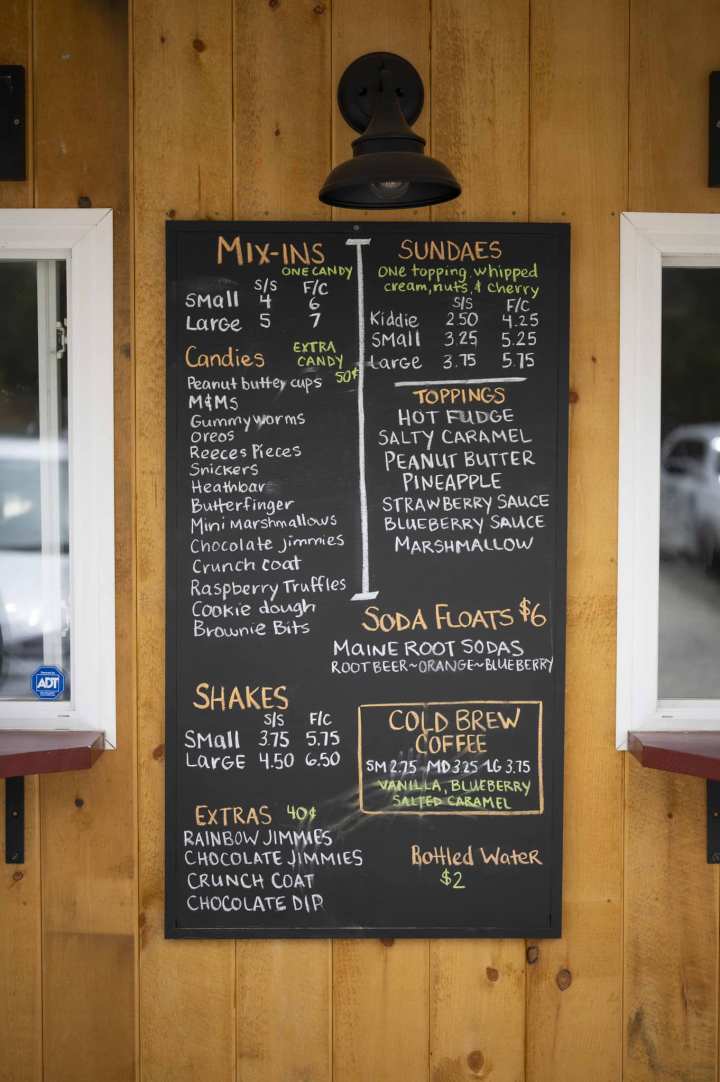 MIX-INS
ONE CANDY
S/S F/C
Small 4 6
Large 5 7
Candies
EXTRA
CANDY
50¢
Peanut butter cups
M&Ms
Gummy worms
Oreos
Reeces Pieces
Snickers
Heathbar
Butterfinger
Mini Marshmallows
Chocolate jimmies
Crunch coat
Raspberry Truffles
Cookie dough
Brownie Bits
SUNDAES
One topping, whipped
cream, nuts, & cherry
S/S F/C
Kiddie 2.50 4.25
Small 3.25 5.25
Large 3.75 5.75
TOPPINGS
HOT FUDGE
SALTY CARAMEL
PEANUT BUTTER
PINEAPPLE
STRAWBERRY SAUCE
BLUEBERRY SAUCE
MARSHMALLOW
SODA FLOATS $6
MAINE ROOT SODAS
ROOTBEER~ORANGE~BLUEBERRY
SHAKES
S/S F/C
Small 3.75 5.75
LARGE 4.50 6.50
COLD BREW
COFFEE
SM 2.75 MD 3.25 LG 3.75
VANILLA, BLUEBERRY
SALTED CARAMEL
EXTRAS 40¢
RAINBOW JIMMIES
CHOCOLATE JIMMIES
CRUNCH COAT
CHOCOLATE DIP
Bottled Water
$2
ADT